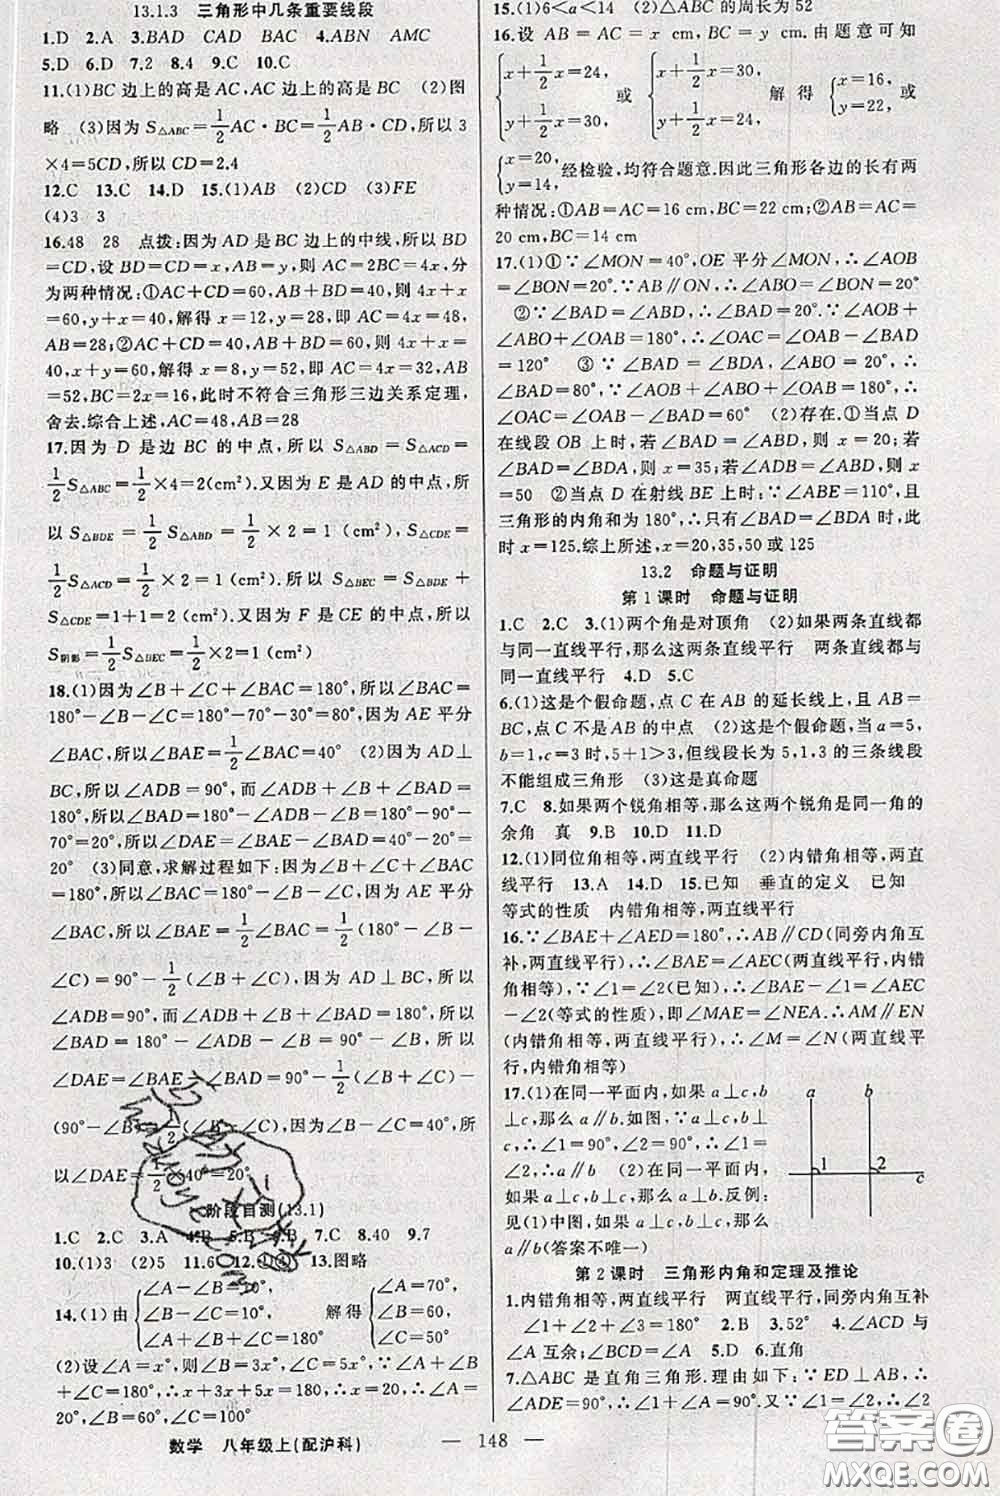 13.1.3 三角形中几条重要线段
1.D 2.A 3.BAD CAD BAC 4.ABN AMC
5.D 6.D 7.2 8.4 9.C 10.C
11.(1)BC边上的高是AC,AC边上的高是BC (2)图
略 (3)因为S△ABC=1/2AC·BC=1/2AB·CD,所以3
×4=5CD,所以CD=2.4
12.C 13.C 14.D 15.(1)AB (2)CD (3)FE
(4)3 3
16.48 28 点拨:因为AD是BC边上的中线,所以BD
=CD,设BD=CD=x,AB=y,则AC=2BC=4x,分
为两种情况:①AC+CD=60,AB+BD=40,则4x+x
=60,y+x=40,解得x=12,y=28,即AC=4x=48,
AB=28;②AC+CD=40,AB+BD=60,则4x+x=
40,x+y=60,解得x=8,y=52,即AC=4x=32,AB
=52,BC=2x=16,此时不符合三角形三边关系定理,
舍去.综合上述,AC=48,AB=28
17.因为D是边BC的中点,所以S△ABD=S△ACD=
1/2S△ABC=1/2×4=2(cm²).又因为E是AD的中点,所
以S△BDE=1/2S△ABD=1/2×2=1(cm²),S△CDE=
1/2S△ACD=1/2×2=1(cm²).所以S△BEC=S△BDE+
S△CDE=1+1=2(cm²).又因为F是CE的中点,所以
S阴影=1/2S△BEC=1/2×2=1(cm²)
18.(1)因为∠B+∠C+∠BAC=180°,所以∠BAC=
180°-∠B-∠C=180°-70°-30°=80°,因为AE平分
∠BAC,所以∠BAE=1/2∠BAC=40° (2)因为AD⊥
BC,所以∠ADB=90°,而∠ADB+∠B+∠BAD=
180°,所以∠BAD=180°-∠ADB-∠B=180°-90°-
70°=20°,所以∠DAE=∠BAE-∠BAD=40°-20°=
20° (3)同意,求解过程如下:因为∠B+∠C+∠BAC
=180°,所以∠BAC=180°-∠B-∠C,因为AE平分
∠BAC,所以∠BAE=1/2∠BAC=1/2(180°-∠B-
∠C)=90°-1/2(∠B+∠C),因为AD⊥BC,所以
∠ADB=90°,而∠ADB+∠B+∠BAD=180°,所以
∠BAD=180°-∠ADB-∠B=90°-∠B,所以
∠DAE=∠BAE-∠BAD=90°-1/2(∠B+∠C)-
(90°-∠B)=1/2(∠B-∠C),又∠B-∠C=40°,所
以∠DAE=1/2×40°=20°
阶段自测(13.1)
1.C 2.C 3.A 4.B 5.B 6.B 7.C 8.40 9.7
10.(1)3 (2)5 11.6 12. 13.图略
14.(1)由{∠A-∠B=10°, ∠B-∠C=10°, ∠A+∠B+∠C=180° 解得{∠A=70°, ∠B=60, ∠C=50°
(2)设∠A=x°,则∠B=3x°,∠C=5x°,∵∠A+∠B+
∠C=180°,∴x+3x+5x=180,∴x=20,∴∠A=
20°,∠B=60°,∠C=100°
数学 八年级上(配沪科)
— 148 —
15.(1)6<a<14 (2)△ABC的周长为52
16.设AB=AC=x cm,BC=y cm.由题意可知
{x+1/2x=24, y+1/2x=30, 或{x+1/2x=30, y+1/2x=24, 解得{x=16, y=22, 或
{x=20, y=14, 经检验,均符合题意.因此三角形各边的长有两
种情况:①AB=AC=16 cm,BC=22 cm;②AB=AC=
20 cm,BC=14 cm
17.(1)①∵∠MON=40°,OE平分∠MON,∴∠AOB
=∠BON=20°.∵AB∥ON,∴∠ABO=∠BON=20°
②∵∠BAD=∠ABD,∴∠BAD=20°.∵∠AOB+
∠ABO+∠OAB=180°,∴∠OAC=∠OAB-∠BAD=
120° ③∵∠BAD=∠BDA,∠ABO=20°,∴
∠BAD=80°,∵∠AOB+∠ABO+∠OAB=180°,∴
∠OAC=∠OAB-∠BAD=60° (2)存在.①当点D
在线段OB上时,若∠BAD=∠ABD,则x=20;若
∠BAD=∠BDA,则x=35;若∠ADB=∠ABD,则x
=50 ②当点D在射线BE上时,∵∠ABE=110°,且
三角形的内角和为180°,∴只有∠BAD=∠BDA时,此
时x=125.综上所述,x=20,35,50或125
13.2 命题与证明
第1课时 命题与证明
1.C 2.C 3.(1)两个角是对顶角 (2)如果两条直线都
与同一直线平行,那么这两条直线平行 两条直线都与
同一直线平行 4.D 5.C
6.(1)这是个假命题,点C在AB的延长线上,且AB=
BC,点C不是AB的中点 (2)这是个假命题,当a=5,
b=1,c=3时,5+1>3,但线段长为5,1,3的三条线段
不能组成三角形 (3)这是真命题
7.C 8.如果两个锐角相等,那么这两个锐角是同一角的
余角 真 9.B 10.D 11.D
12.(1)同位角相等,两直线平行 (2)内错角相等,两直
线平行 13.A 14.D 15.已知 垂直的定义 已知
等式的性质 内错角相等,两直线平行
16.∵∠BAE+∠AED=180°,∴AB∥CD(同旁内角互
补,两直线平行),∴∠BAE=∠AEC(两直线平行,内
错角相等),∵∠1=∠2(已知),∴∠BAE-∠1=∠AEC
-∠2(等式的性质),即∠MAE=∠NEA.∴AM∥EN
(内错角相等,两直线平行),∴∠M=∠N(两直线平
行,内错角相等)
17.(1)在同一平面内,如果a⊥c,b
⊥c,那么a∥b.如图,∵a⊥c,b⊥
c,∴∠1=90°,∠2=90°,∴∠1=
∠2,∴a∥b (2)在同一平面内,
如果a⊥c,b⊥c,那么a⊥b.反例:
见(1)中图,如果a⊥c,b⊥c,那么
a∥b(答案不唯一)
a b 1 2 c
第2课时 三角形内角和定理及推论
1.内错角相等,两直线平行 两直线平行,同旁内角互补
∠1+∠2+∠3=180° 2.B 3.52° 4.∠ACD与
∠A互余;∠BCD=∠A 5.D 6.直角
7.△ABC是直角三角形.理由如下:∵ED⊥AB,∴
∠ADE=90°,∴∠1+∠A=90°,又∵∠1=∠2
答案圈
MXQE.COM